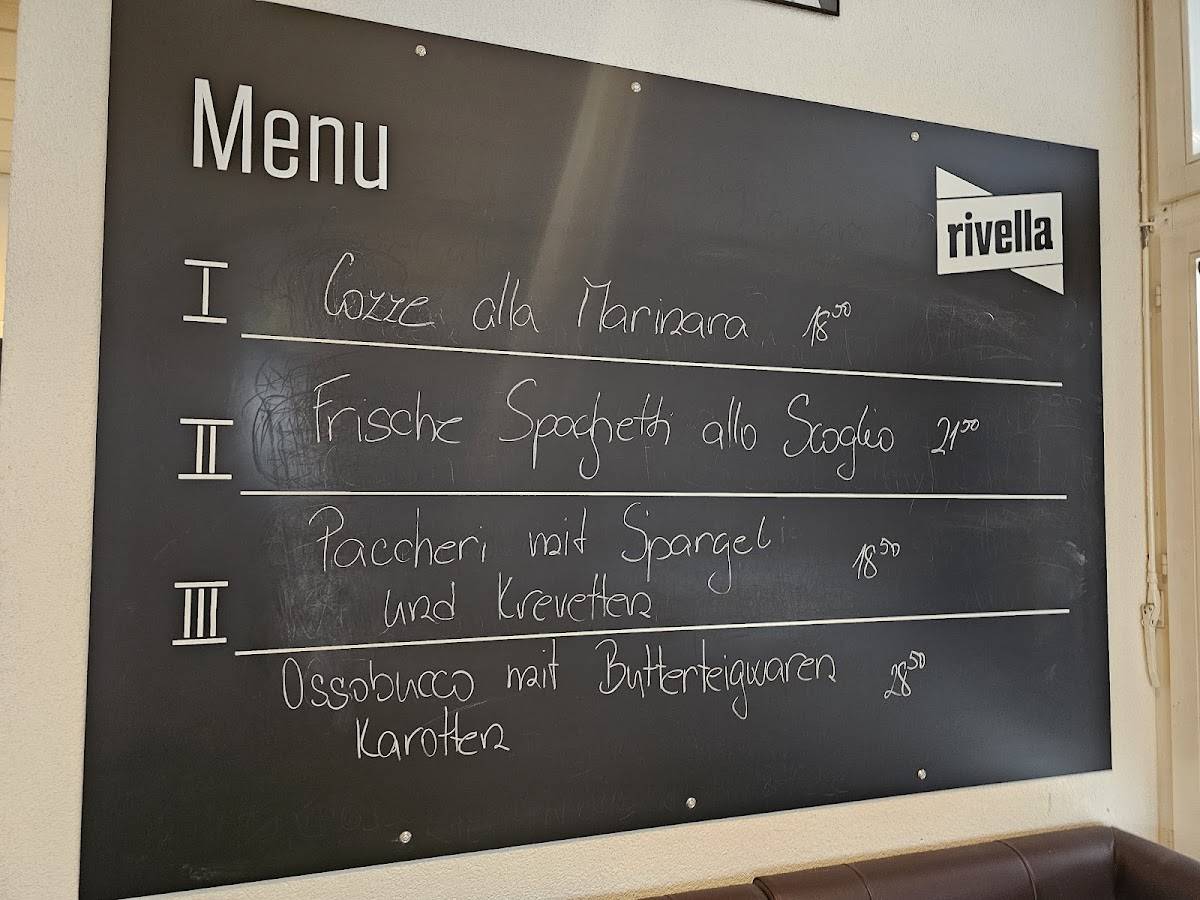 Menu
rivella
I Cozze alla Marinara 18⁵⁰
II Frische Spaghetti allo Scoglio 21⁵⁰
Paccheri mit Spargel 18⁵⁰
III und Krevetten
Ossobucco mit Butterteigwaren 28⁵⁰
Karotten